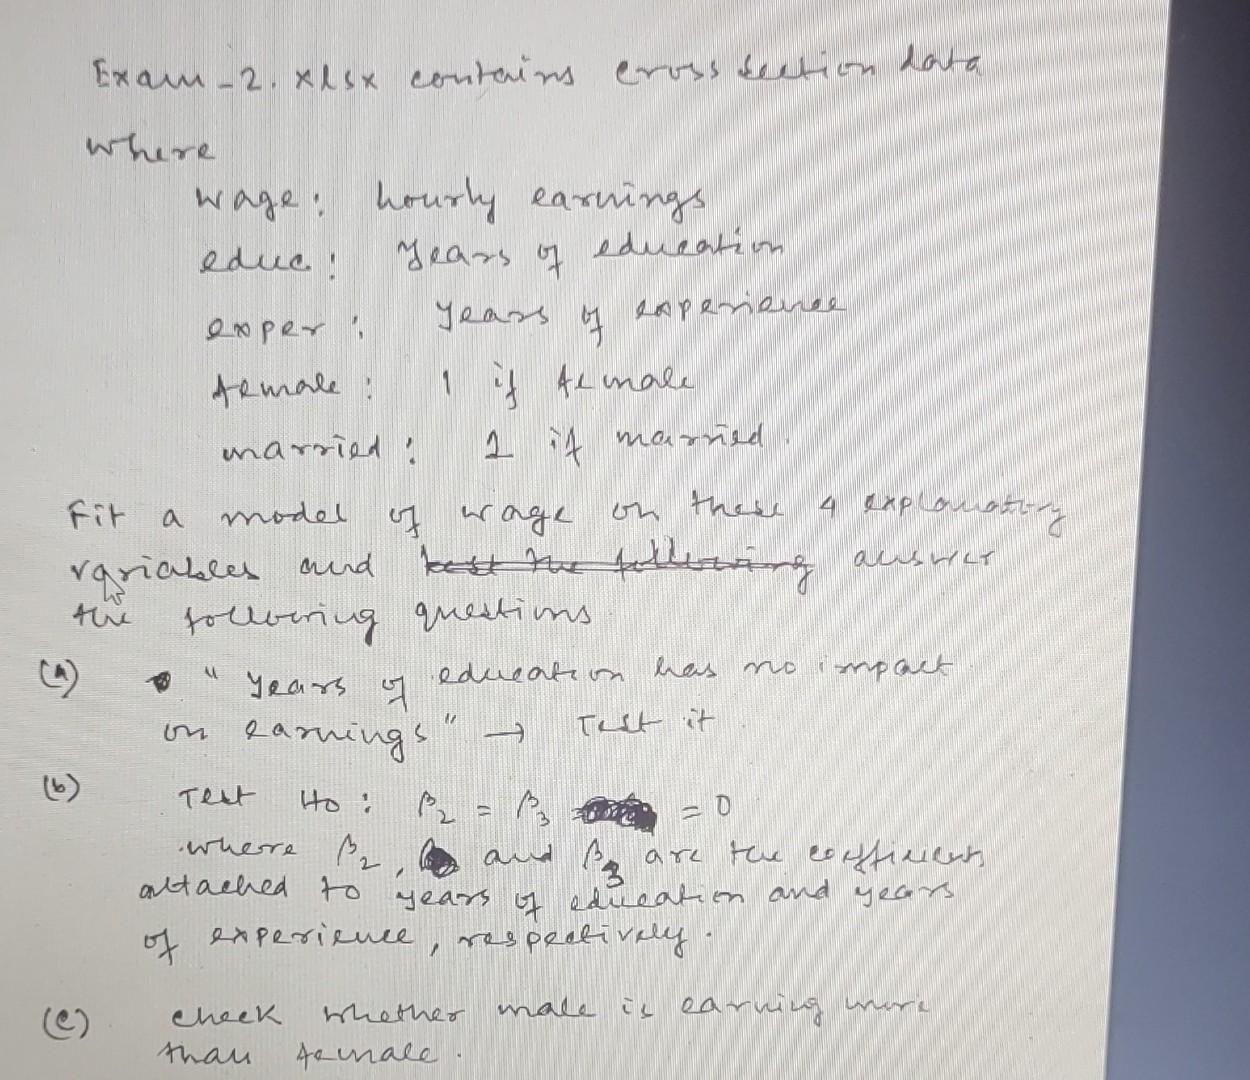 Exam-2.xlsx contains cross section data
where
wage: hourly earnings
educ: years of education
exper: years of experience
female: 1 if female
married: 1 if married.
Fit a model of wage on these 4 explanatory
variables and test the following answer
the following questions
(a) "years of education has no impact
on earnings" → Test it
(b) Test H0: β2 = β3 = 0
where β2, and β3 are the coefficients
attached to years of education and years
of experience, respectively.
(c) check whether male is earning more
than female.